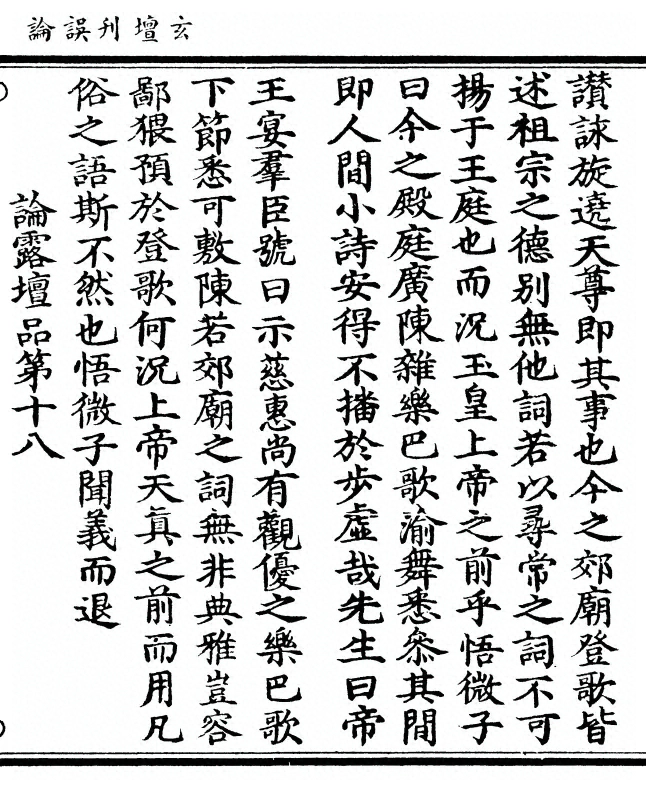 玄壇刋誤論
讃詠旋遶天尊即其事也今之郊廟登歌皆
述祖宗之德別無他詞若以尋常之詞不可
揚于王庭也而況玉皇上帝之前乎悟微子
曰今之殿庭廣陳雜樂巴歌渝舞悉叅其間
即人間小詩安得不播於步虛哉先生曰帝
王宴羣臣號曰示慈惠尚有觀優之樂巴歌
下節悉可敷陳若郊廟之詞無非典雅豈容
鄙猥預於登歌何況上帝天真之前而用凡
俗之語斯不然也悟微子聞義而退
論露壇品第十八